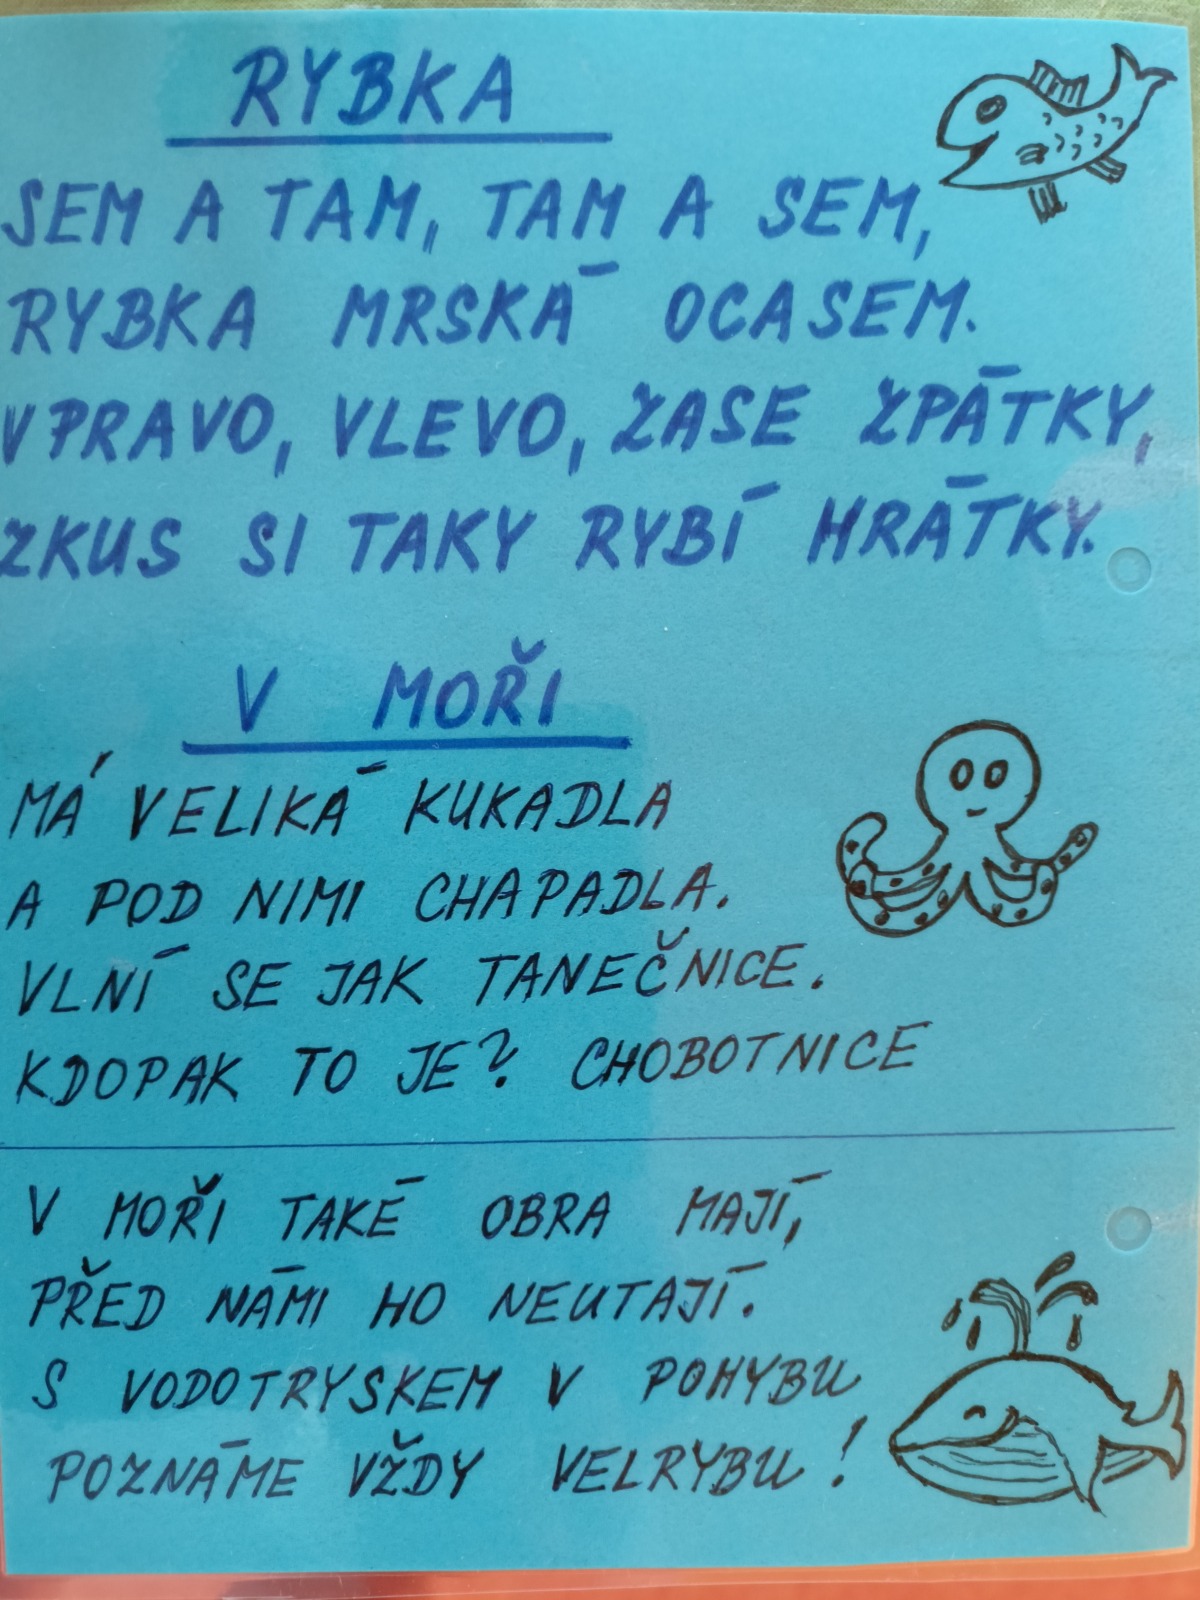 RYBKA
SEM A TAM, TAM A SEM,
RYBKA MRSKÁ OCASEM.
VPRAVO, VLEVO, ZASE ZPÁTKY,
ZKUS SI TAKY RYBÍ HRÁTKY.
V MOŘI
MÁ VELIKÁ KUKADLA
A POD NIMI CHAPADLA.
VLNÍ SE JAK TANEČNICE.
KDOPAK TO JE? CHOBOTNICE
V MOŘI TAKÉ OBRA MAJÍ,
PŘED NÁMI HO NEUTAJÍ.
S VODOTRYSKEM V POHYBU
POZNÁME VŽDY VELRYBU!